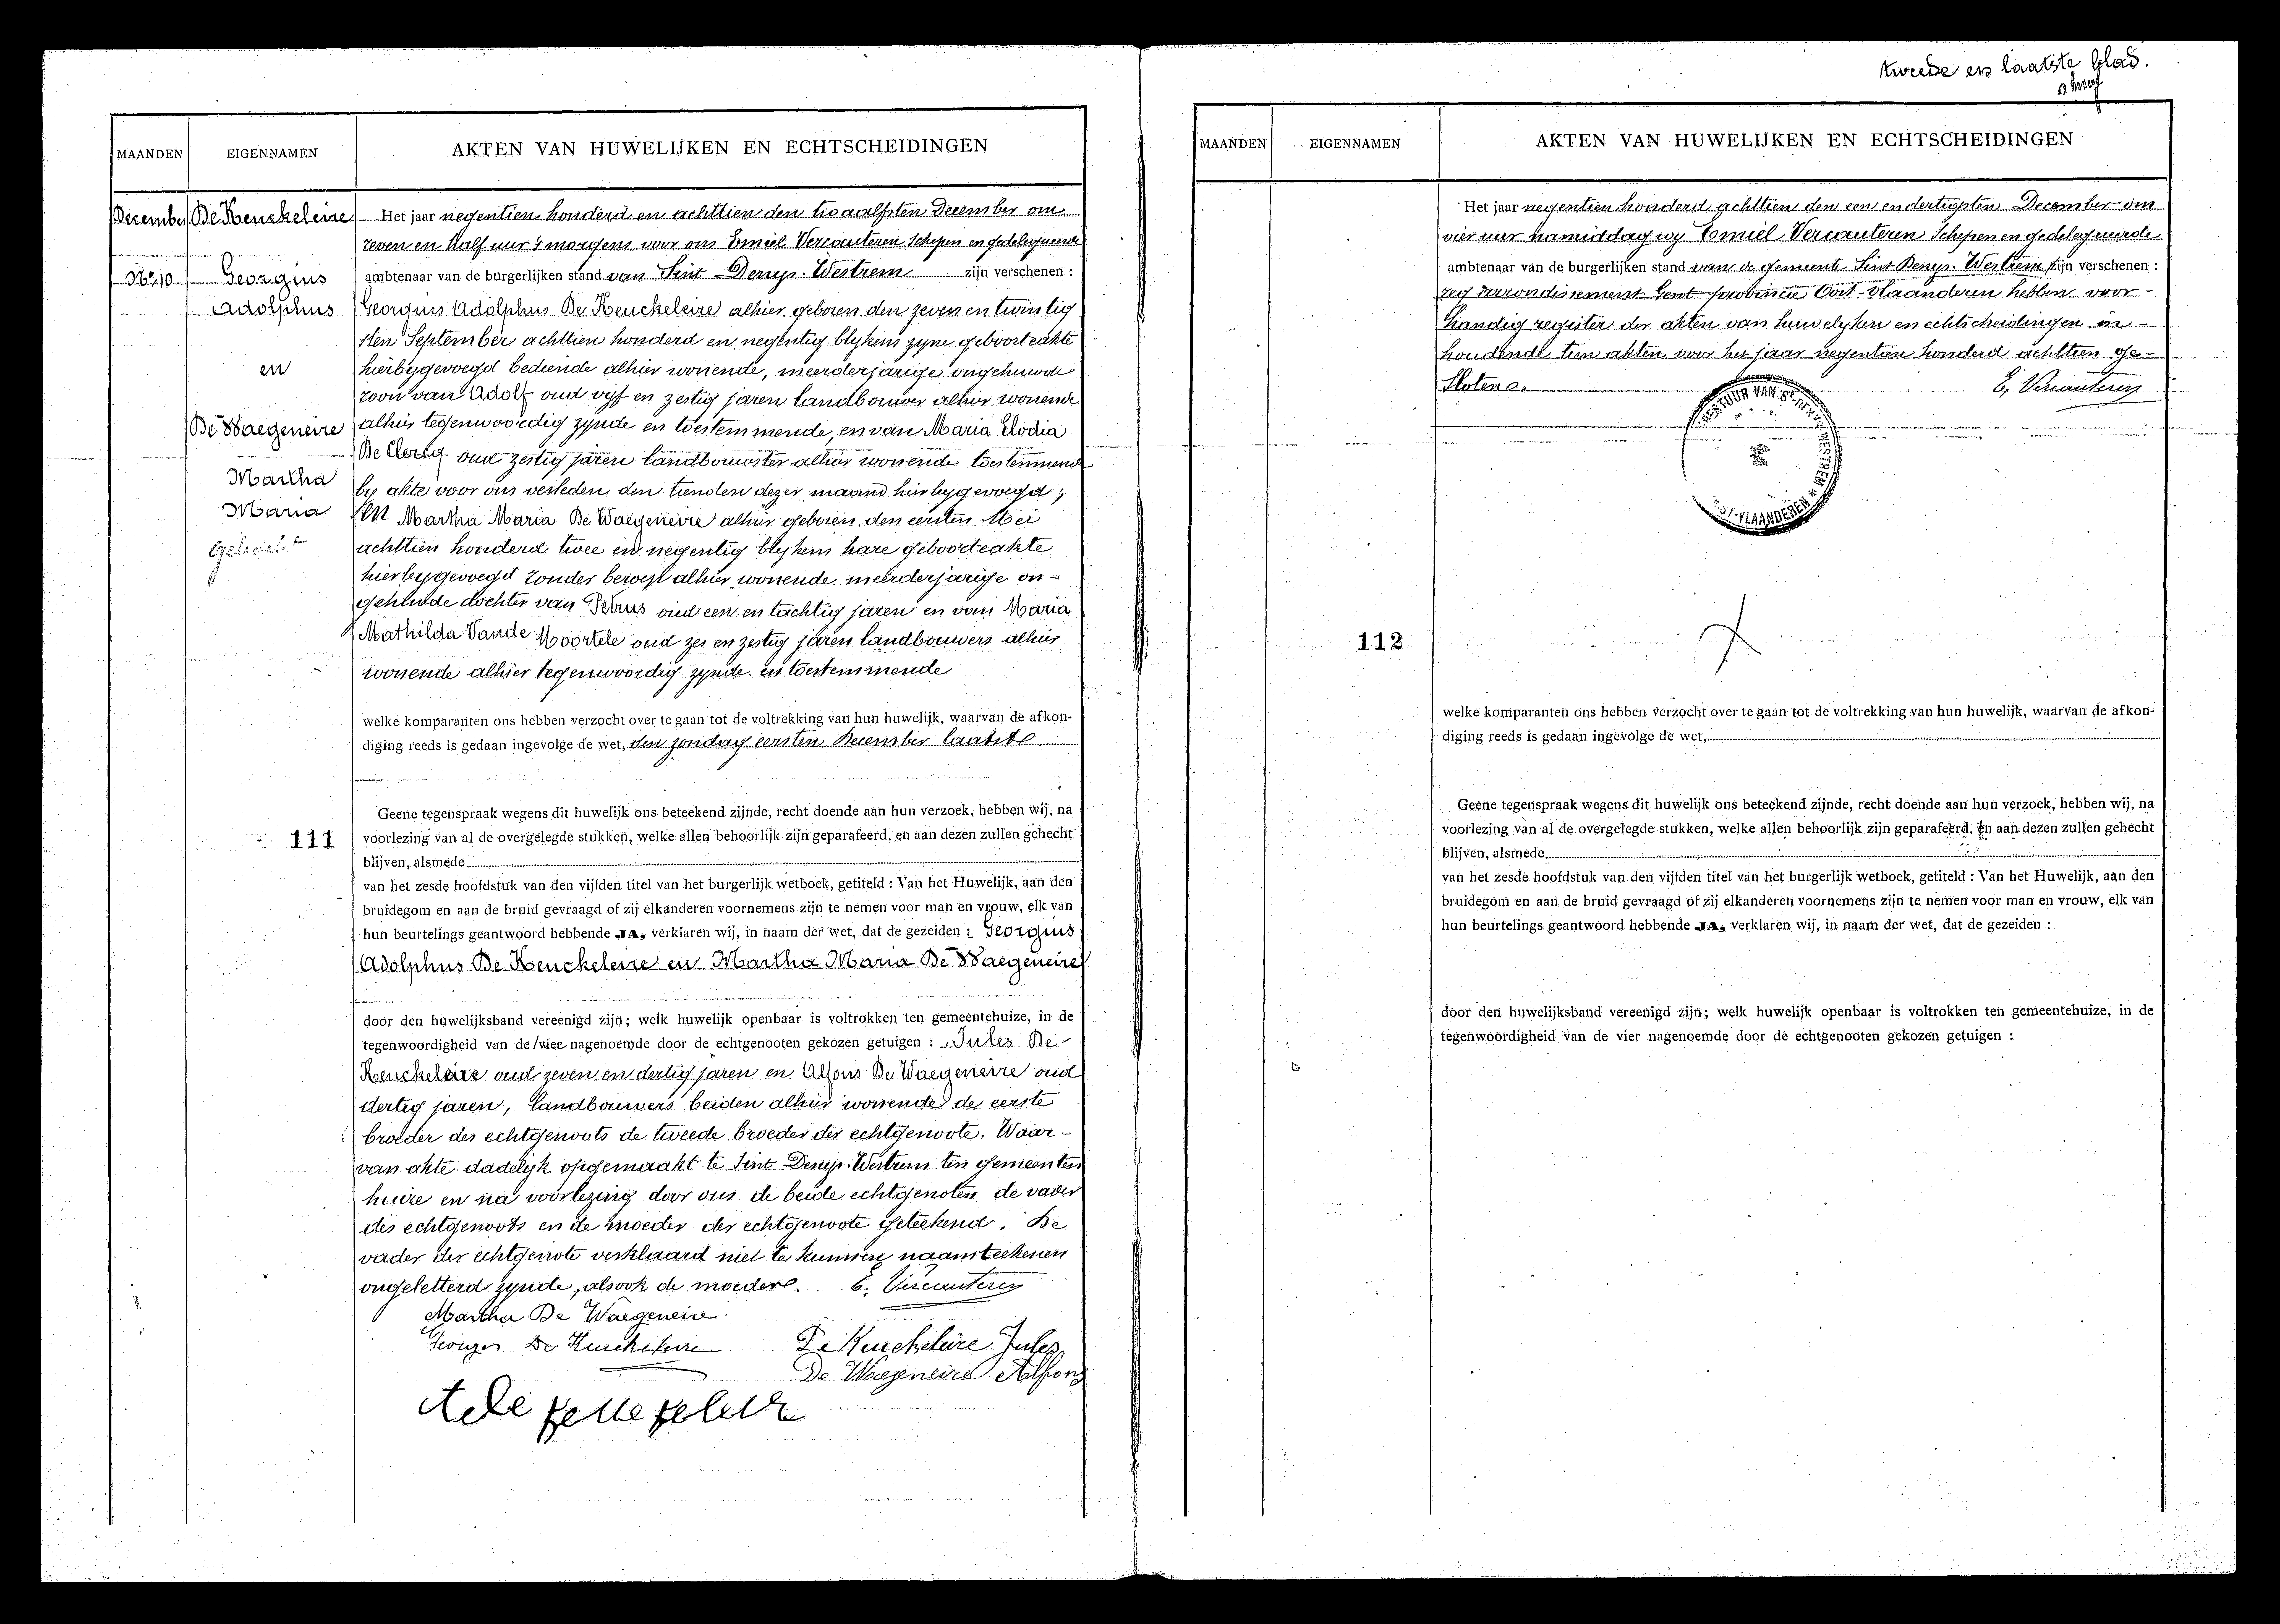 MAANDEN
EIGENNAMEN
AKTEN VAN HUWELIJKEN EN ECHTSCHEIDINGEN
December
De Keuckeleire
No 10
Georgius
Adolphus
en
De Waegeneire
Martha
Maria
111
Het jaar negentien honderd en achttien den twaalfsten December om
zeven en half uur 's morgens voor ons Emiel Vercauteren Schepen en gedelegueerde
ambtenaar van de burgerlijken stand van Sint-Denys-Westrem zijn verschenen :
Georgius Adolphus De Keuckeleire alhier geboren den zeven en twintig
sten September achttien honderd en negentig blykens zyne geboorteakte
hierbygevoegd bediende alhier wonende, meerderjarige ongehuwde
zoon van Adolf oud vyf en zestig jaren landbouwer alhier wonende
alhier tegenwoordig zynde en toestemmende, en van Maria Elodia
De Clercq oud zestig jaren landbouwster alhier wonende toestemmende
by akte voor ons verleden den tienden dezer maand hierbygevoegd ;
En Martha Maria De Waegeneire alhier geboren den eersten Mei
achttien honderd twee en negentig blykens hare geboorteakte
hierbygevoegd zonder beroep alhier wonende meerderjarige on-
gehuwde dochter van Petrus oud een en tachtig jaren en van Maria
Mathilda Vande Moortele oud zes en zestig jaren landbouwers alhier
wonende alhier tegenwoordig zynde en toestemmende
welke komparanten ons hebben verzocht over te gaan tot de voltrekking van hun huwelijk, waarvan de afkon-
diging reeds is gedaan ingevolge de wet, den zondag eersten December laatst
Geene tegenspraak wegens dit huwelijk ons beteekend zijnde, recht doende aan hun verzoek, hebben wij, na
voorlezing van al de overgelegde stukken, welke allen behoorlijk zijn geparafeerd, en aan dezen zullen gehecht
blijven, alsmede
van het zesde hoofdstuk van den vijfden titel van het burgerlijk wetboek, getiteld : Van het Huwelijk, aan den
bruidegom en aan de bruid gevraagd of zij elkanderen voornemens zijn te nemen voor man en vrouw, elk van
hun beurtelings geantwoord hebbende JA, verklaren wij, in naam der wet, dat de gezeiden : Georgius
Adolphus De Keuckeleire en Martha Maria De Waegeneire
door den huwelijksband vereenigd zijn; welk huwelijk openbaar is voltrokken ten gemeentehuize, in de
tegenwoordigheid van de twee nagenoemde door de echtgenooten gekozen getuigen : Jules De
Keuckeleire oud zeven en dertig jaren en Alfons De Waegeneire oud
dertig jaren, landbouwers beiden alhier wonende de eerste
broeder des echtgenoots de tweede broeder der echtgenoote. Waar-
van akte dadelyk opgemaakt te Sint-Denys-Westrem ten gemeenten
huize en na voorlezing door ons de beide echtgenoten de vader
des echtgenoots en de moeder der echtgenoote geteekend. De
vader der echtgenoote verklaard niet te kunnen naamteekenen
ongeletterd zynde, alsook de moeder. E. Vercauteren
Martha De Waegeneire
Georges De Keuckeleire
De Keuckeleire Jules
De Waegeneire Alfons
tweede en laatste blad.
MAANDEN
EIGENNAMEN
AKTEN VAN HUWELIJKEN EN ECHTSCHEIDINGEN
112
Het jaar negentien honderd achttien den een en dertigsten December om
vier uur namiddag wy Emiel Vercauteren Schepen en gedelegueerde
ambtenaar van de burgerlijken stand van de gemeente Sint Denys-Westrem zijn verschenen :
arrondissement Gent provincie Oost-Vlaanderen hebben voor-
handig register der akten van huwelyken en echtscheidingen in-
houdende tien akten voor het jaar negentien honderd achttien ge-
sloten.
E. Vercauteren
BESTUUR VAN St DENYS WESTREM * OOST-VLAANDEREN
welke komparanten ons hebben verzocht over te gaan tot de voltrekking van hun huwelijk, waarvan de afkon-
diging reeds is gedaan ingevolge de wet,
Geene tegenspraak wegens dit huwelijk ons beteekend zijnde, recht doende aan hun verzoek, hebben wij, na
voorlezing van al de overgelegde stukken, welke allen behoorlijk zijn geparafeerd, en aan dezen zullen gehecht
blijven, alsmede
van het zesde hoofdstuk van den vijfden titel van het burgerlijk wetboek, getiteld : Van het Huwelijk, aan den
bruidegom en aan de bruid gevraagd of zij elkanderen voornemens zijn te nemen voor man en vrouw, elk van
hun beurtelings geantwoord hebbende JA, verklaren wij, in naam der wet, dat de gezeiden :
door den huwelijksband vereenigd zijn; welk huwelijk openbaar is voltrokken ten gemeentehuize, in de
tegenwoordigheid van de vier nagenoemde door de echtgenooten gekozen getuigen :